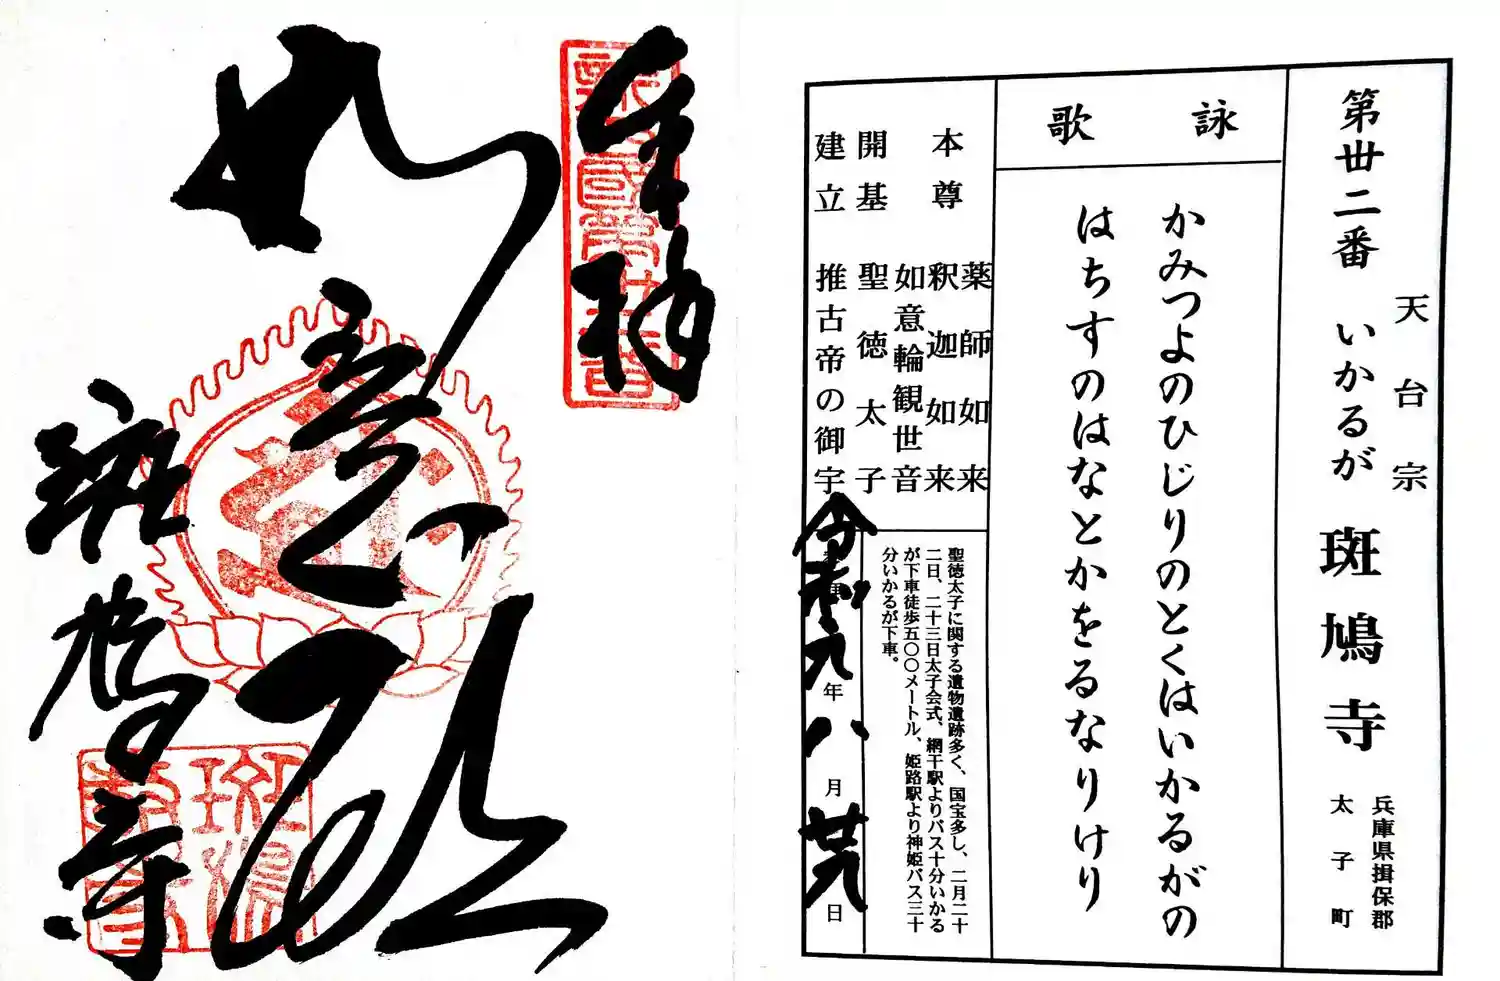 第丗二番 いかるが 斑鳩寺
天台宗
兵庫県揖保郡
太子町
詠歌
かみつよのひじりのとくはいかるがの
はちすのはなとかをるなりけり
本尊
薬師如来
釈迦如来
如意輪観世音
開基 聖徳太子
建立 推古帝の御宇
聖徳太子に関する遺物遺跡多く、国宝多し、二月二十
二日、二十三日太子会式、網干駅よりバス十分いかる
が下車徒歩五〇〇メートル、姫路駅より神姫バス三十
分いかるが下車。
令和六年八月廿九日
奉拝
如意殿
斑鳩寺
斑鳩